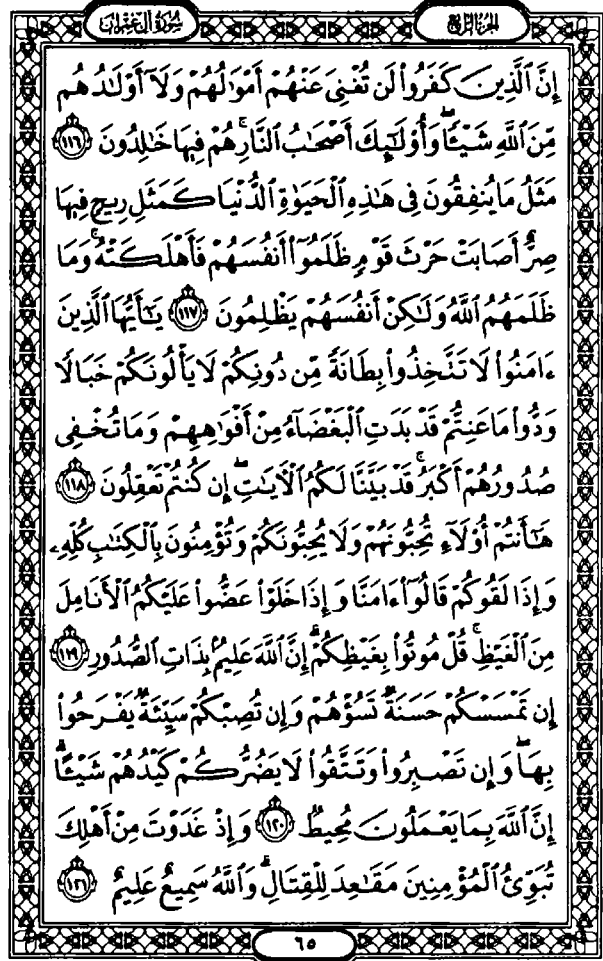 سُورَةُ آلِ عِمۡرَانَ
الجُزءُ الرَّابِعُ
إِنَّ ٱلَّذِينَ كَفَرُواْ لَن تُغۡنِيَ عَنۡهُمۡ أَمۡوَٰلُهُمۡ وَلَآ أَوۡلَٰدُهُم
مِّنَ ٱللَّهِ شَيۡـٔٗاۖ وَأُوْلَٰٓئِكَ أَصۡحَٰبُ ٱلنَّارِۚ هُمۡ فِيهَا خَٰلِدُونَ ١١٦
مَثَلُ مَا يُنفِقُونَ فِي هَٰذِهِ ٱلۡحَيَوٰةِ ٱلدُّنۡيَا كَمَثَلِ رِيحٖ فِيهَا
صِرٌّ أَصَابَتۡ حَرۡثَ قَوۡمٖ ظَلَمُوٓاْ أَنفُسَهُمۡ فَأَهۡلَكَتۡهُۚ وَمَا
ظَلَمَهُمُ ٱللَّهُ وَلَٰكِنۡ أَنفُسَهُمۡ يَظۡلِمُونَ ١١٧ يَٰٓأَيُّهَا ٱلَّذِينَ
ءَامَنُواْ لَا تَتَّخِذُواْ بِطَانَةٗ مِّن دُونِكُمۡ لَا يَأۡلُونَكُمۡ خَبَالٗا
وَدُّواْ مَا عَنِتُّمۡ قَدۡ بَدَتِ ٱلۡبَغۡضَآءُ مِنۡ أَفۡوَٰهِهِمۡ وَمَا تُخۡفِي
صُدُورُهُمۡ أَكۡبَرُۚ قَدۡ بَيَّنَّا لَكُمُ ٱلۡأٓيَٰتِۖ إِن كُنتُمۡ تَعۡقِلُونَ ١١٨
هَٰٓأَنتُمۡ أُوْلَآءِ تُحِبُّونَهُمۡ وَلَا يُحِبُّونَكُمۡ وَتُؤۡمِنُونَ بِٱلۡكِتَٰبِ كُلِّهِۦ
وَإِذَا لَقُوكُمۡ قَالُوٓاْ ءَامَنَّا وَإِذَا خَلَوۡاْ عَضُّواْ عَلَيۡكُمُ ٱلۡأَنَامِلَ
مِنَ ٱلۡغَيۡظِۚ قُلۡ مُوتُواْ بِغَيۡظِكُمۡۗ إِنَّ ٱللَّهَ عَلِيمُۢ بِذَاتِ ٱلصُّدُورِ ١١٩
إِن تَمۡسَسۡكُمۡ حَسَنَةٞ تَسُؤۡهُمۡ وَإِن تُصِبۡكُمۡ سَيِّئَةٞ يَفۡرَحُواْ
بِهَاۖ وَإِن تَصۡبِرُواْ وَتَتَّقُواْ لَا يَضُرُّكُمۡ كَيۡدُهُمۡ شَيۡـًٔاۗ
إِنَّ ٱللَّهَ بِمَا يَعۡمَلُونَ مُحِيطٞ ١٢٠ وَإِذۡ غَدَوۡتَ مِنۡ أَهۡلِكَ
تُبَوِّئُ ٱلۡمُؤۡمِنِينَ مَقَٰعِدَ لِلۡقِتَالِۗ وَٱللَّهُ سَمِيعٌ عَلِيمٌ ١٢١
٦٥